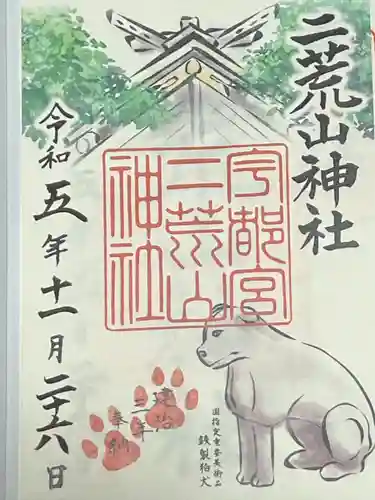 二荒山神社
宇都宮
二荒山
神社
建治
三年
奉納
国指定重要美術品
鉄製狛犬
令和五年十一月二十六日